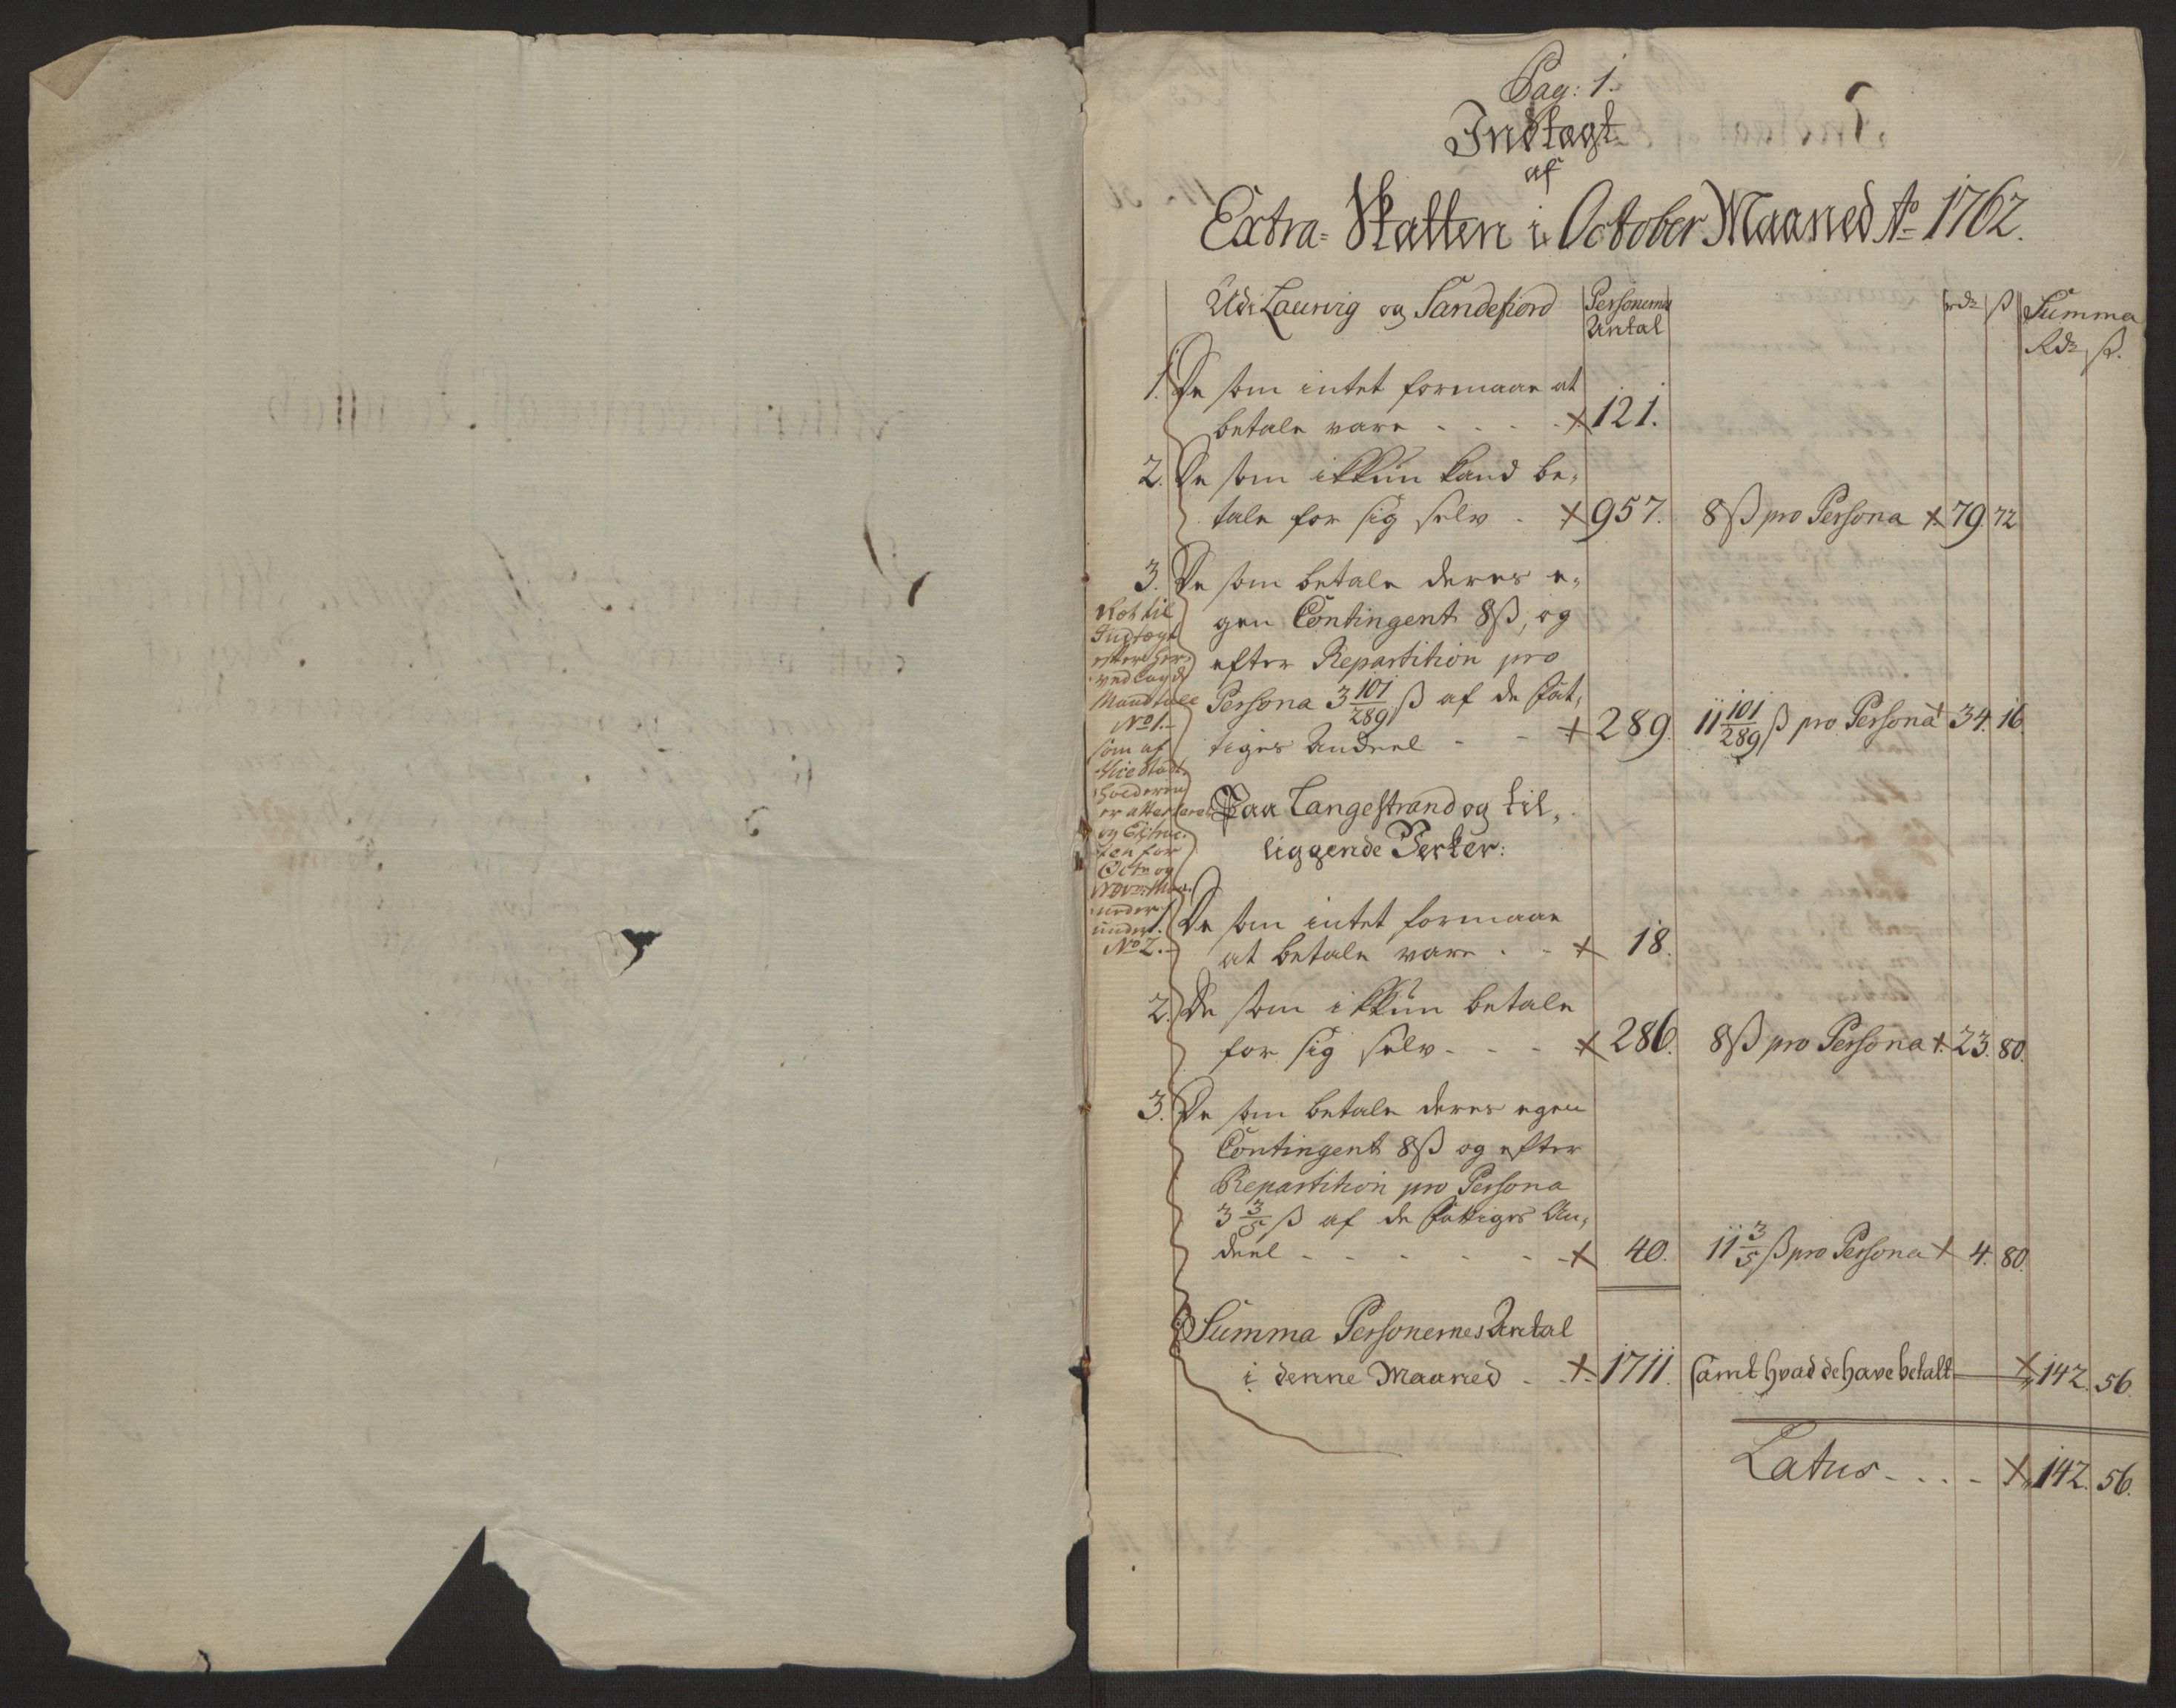 Pag: 1.
Indtægt
af
Extra-Skatten i October Maaned Ao 1762.
Udi Laurvig og Sandefiord
Personernes Antal
rdr ß
Summa
Rdr ß.
1. De som intet formaae at
betale vare - - - - 121.
2. De som ikkun kand be-
tale for sig selv - 957. 8 ß pro Persona 79. 72
3. De som betale deres e-
gen Contingent 8 ß, og
efter Repartition pro
Persona 3 101/289 ß af de fat-
tiges Andeel - - 289. 11 101/289 ß pro Persona 34. 16.
Paa Langestrand og til-
liggende Verker:
1. De som intet formaae
at betale vare - - 18.
2. De som ikkun betale
for sig selv - - - 286. 8 ß pro Persona 23. 80.
3. De som betale deres egen
Contingent 8 ß og efter
Repartition pro Persona
3 3/5 ß af de fattiges An-
deel - - - - - - 40. 11 3/5 ß pro Persona 4. 80.
Summa Personernes Antal
i denne Maaned - - 1711. samt hvad de have betalt 142. 56.
Latus - - - - 142. 56.
til
Indtægt
efter her-
ved lagde
Mandtall
No 1.-
som af
er attesteret
og
ten for
Octr og
under
No 2.-